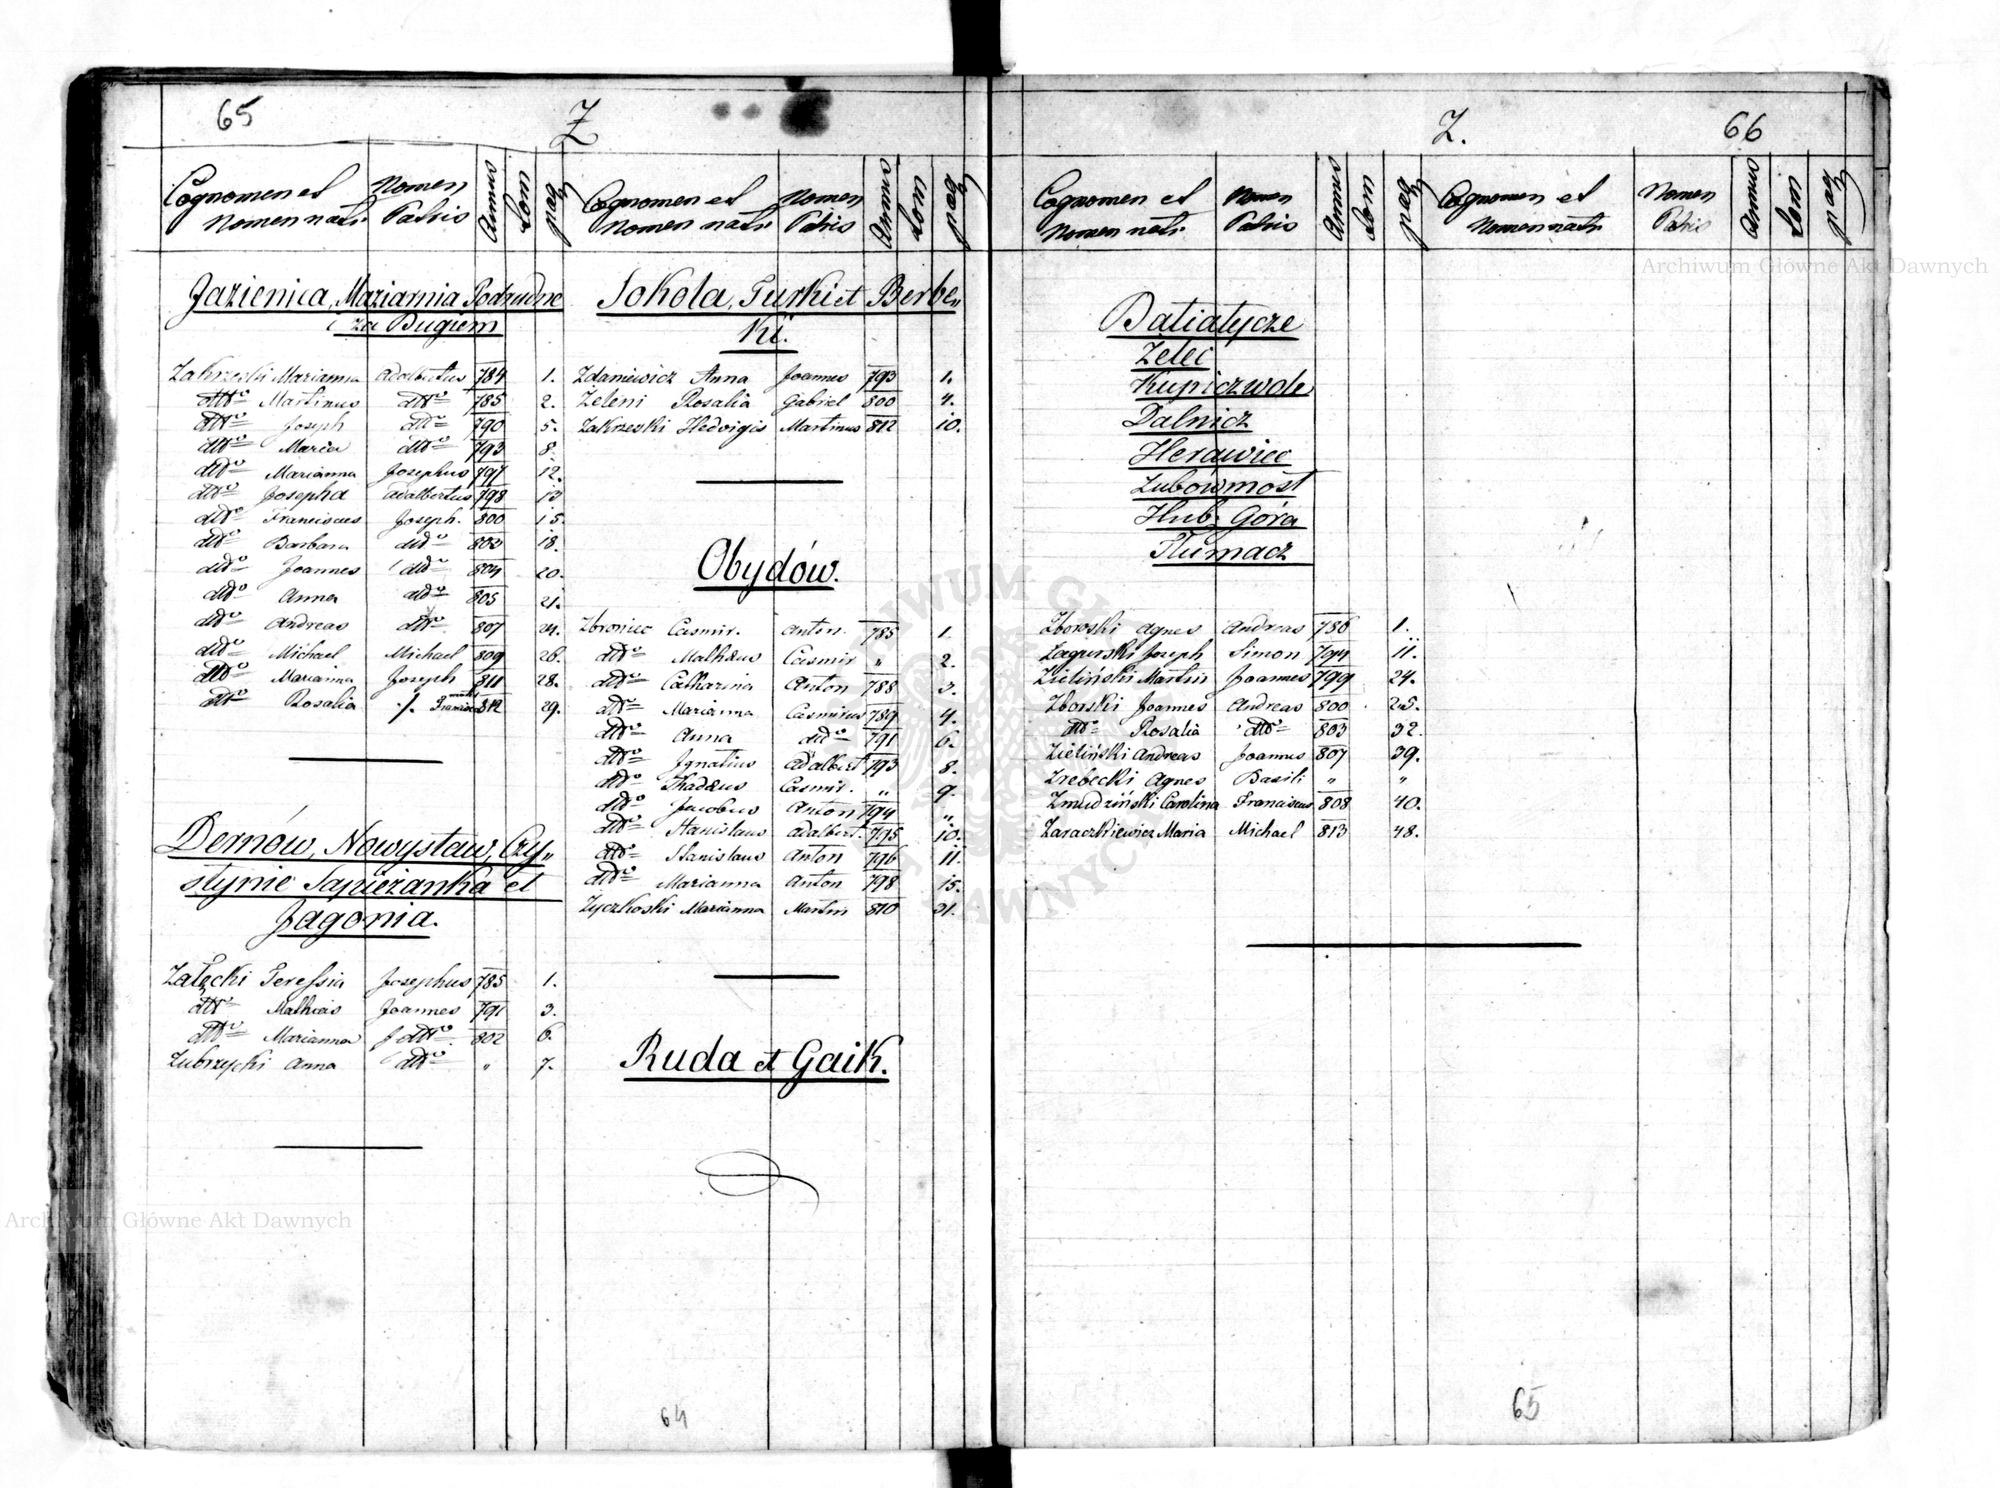 65
Z
Cognomen et
Nomen nati
Nomen
Patris
Annus
Tom
pag
Cognomen et
Nomen nati
Nomen
Patris
Annus
Tom
pag
Jazienica, Maziarnia Podrudne
i za Bugiem
Zakrzeski Marianna Adalbertus 784 1.
dtto Martinus dtto 785 2.
dtto Joseph dtto 790 5.
dtto Maria dtto 793 8.
dtto Marianna Josephus 797 12.
dtto Josepha Adalbertus 798 13
dtto Franciscus Joseph. 800 15.
dtto Barbara dtto 803 18.
dtto Joannes dtto 804 20.
dtto Anna dtto 805 21.
dtto Andreas dtto 807 24.
dtto Michael Michael 809 26.
dtto Marianna Joseph 811 28.
dtto Rosalia 812 29.
Dernów, Nowystaw, Czy„
stynie Sapieżanka et
Jagonia.
Załęcki Teressia Josephus 785 1.
dtto Mathias Joannes 791 3.
dtto Marianna dtto 802 6.
Zubrzycki Anna dtto „ 7.
Sokola, Turki et Berbe„
ki.
Zdaniewicz Anna Joannes 793 1.
Zeleni Rosalia Gabriel 800 4.
Zakrzeski Hedvigis Martinus 812 10.
Obydów.
Zbroniec Casmir. Anton. 785 1.
dtto Mathæus Casmir „ 2.
dtto Catharina Anton 788 3.
dtto Marianna Casmirus 789 4.
dtto Anna dtto 791 6.
dtto Ignatius Adalbert 793 8.
dtto Thadæus Casmir. „ 9.
dtto Jacobus Anton 794 „
dtto Stanislaus Adalbert. 795 10.
dtto Stanislaus Anton 796 11.
dtto Marianna Anton 798 15.
Zyczkoski Marianna Martin 810 31.
Ruda et Gaik.
64
Z.
66
Cognomen et
Nomen nati
Nomen
Patris
Annus
Tom
pag
Cognomen et
Nomen nati
Nomen
Patris
Annus
Tom
pag
Batiatycze
Zelec
Kupiczwole
Dalnicz
Herawiec
Zubowmost
Hub. Góra
Tłumacz
Zboroski Agnes Andreas 786 1.
Zagurski Joseph Simon 794 11.
Zieliński Martin Joannes 799 24.
Zborski Joannes Andreas 800 25.
dtto Rosalia dtto 803 32.
Zieliński Andreas Joannes 807 39.
Zrebecki Agnes Basili „ „
Zmudziński Carolina Franciscus 808 40.
Zaraczkiewicz Maria Michael 813 48.
65
Archiwum Główne Akt Dawnych
Archiwum Główne Akt Dawnych